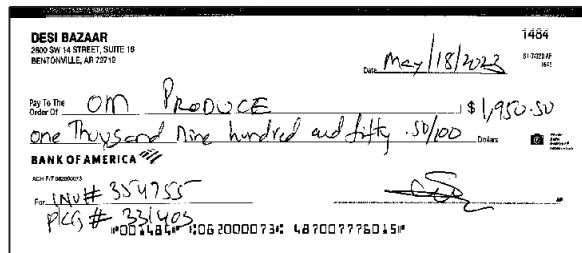 DESI BAZAAR 1484
2600 SW 14 STREET, SUITE 16
BENTONVILLE, AR 72712
Date May/18/2023
Pay To The
Order Of OM PRODUCE $ 1,950.50
one Thousand Nine hundred and fifty .50/100 Dollars
BANK OF AMERICA
For INV# 354755
PKG # 331403
⑈001484⑈ ⑆062000073⑆ 487007776015⑈